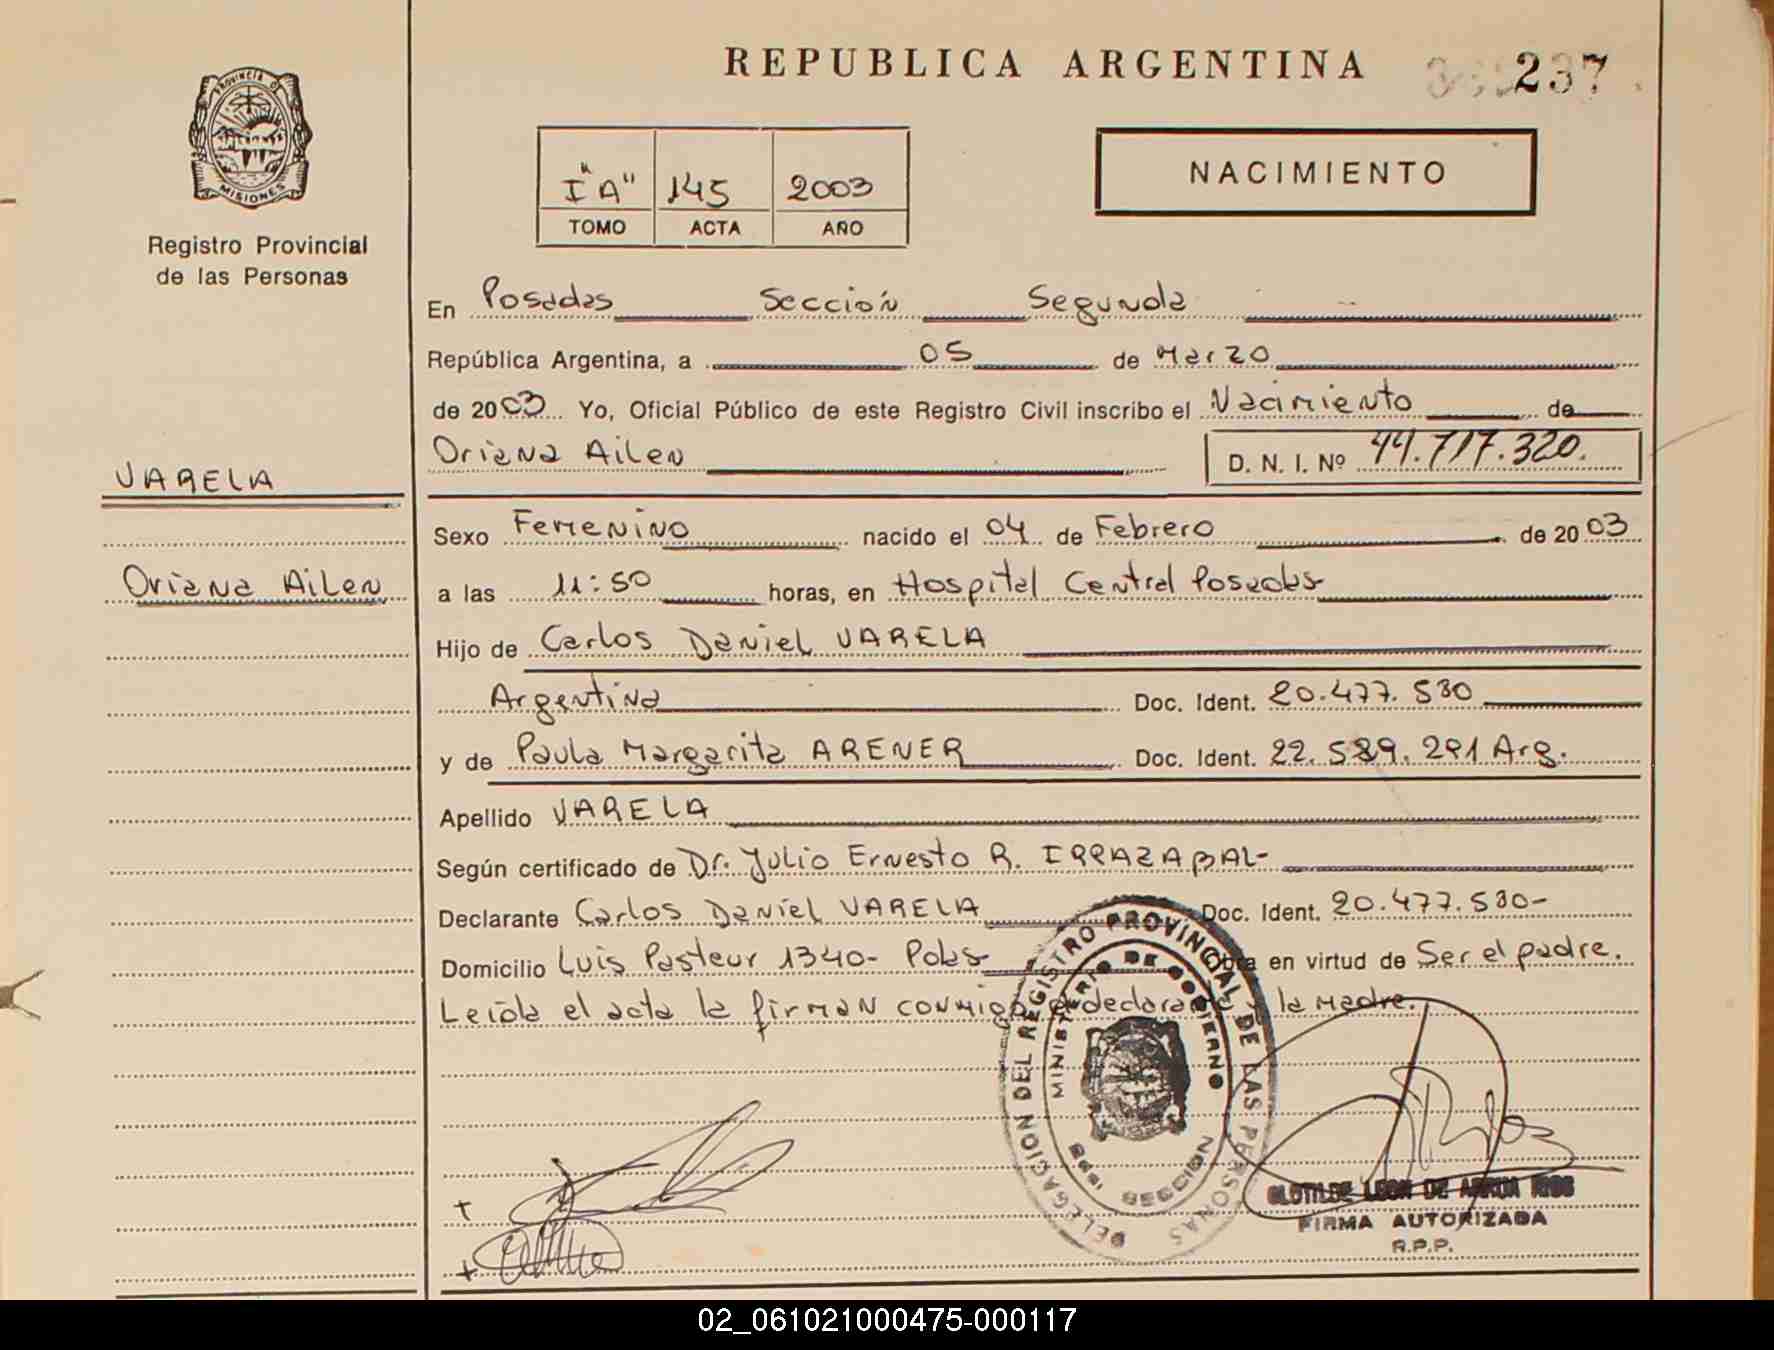 REPUBLICA ARGENTINA
237
PROVINCIA DE
MISIONES
Registro Provincial
de las Personas
I "A" 145 2003
TOMO ACTA AÑO
NACIMIENTO
En Posadas Sección Segunda
República Argentina, a 05 de Marzo
de 2003 Yo, Oficial Público de este Registro Civil inscribo el Nacimiento de
Oriana Ailen D. N. I. Nº 44.717.320.
VARELA
Oriana Ailen
Sexo Femenino nacido el 04 de Febrero de 2003
a las 11:50 horas, en Hospital Central Posadas
Hijo de Carlos Daniel VARELA
Argentina Doc. Ident. 20.477.530
y de Paula Margarita ARENER Doc. Ident. 22.589.291 Arg.
Apellido VARELA
Según certificado de Dr. Julio Ernesto R. IRRAZABAL-
Declarante Carlos Daniel VARELA Doc. Ident. 20.477.530-
Domicilio Luis Pasteur 1340- Pdas- Obra en virtud de Ser el padre.
Leída el acta la firman conmigo el declarante y la madre.
DELEGACION DEL REGISTRO PROVINCIAL DE LAS PERSONAS
MINISTERIO DE GOBIERNO
SECCION
CLOTILDE LEON DE ARRUA RIOS
FIRMA AUTORIZADA
R.P.P.
02_061021000475-000117